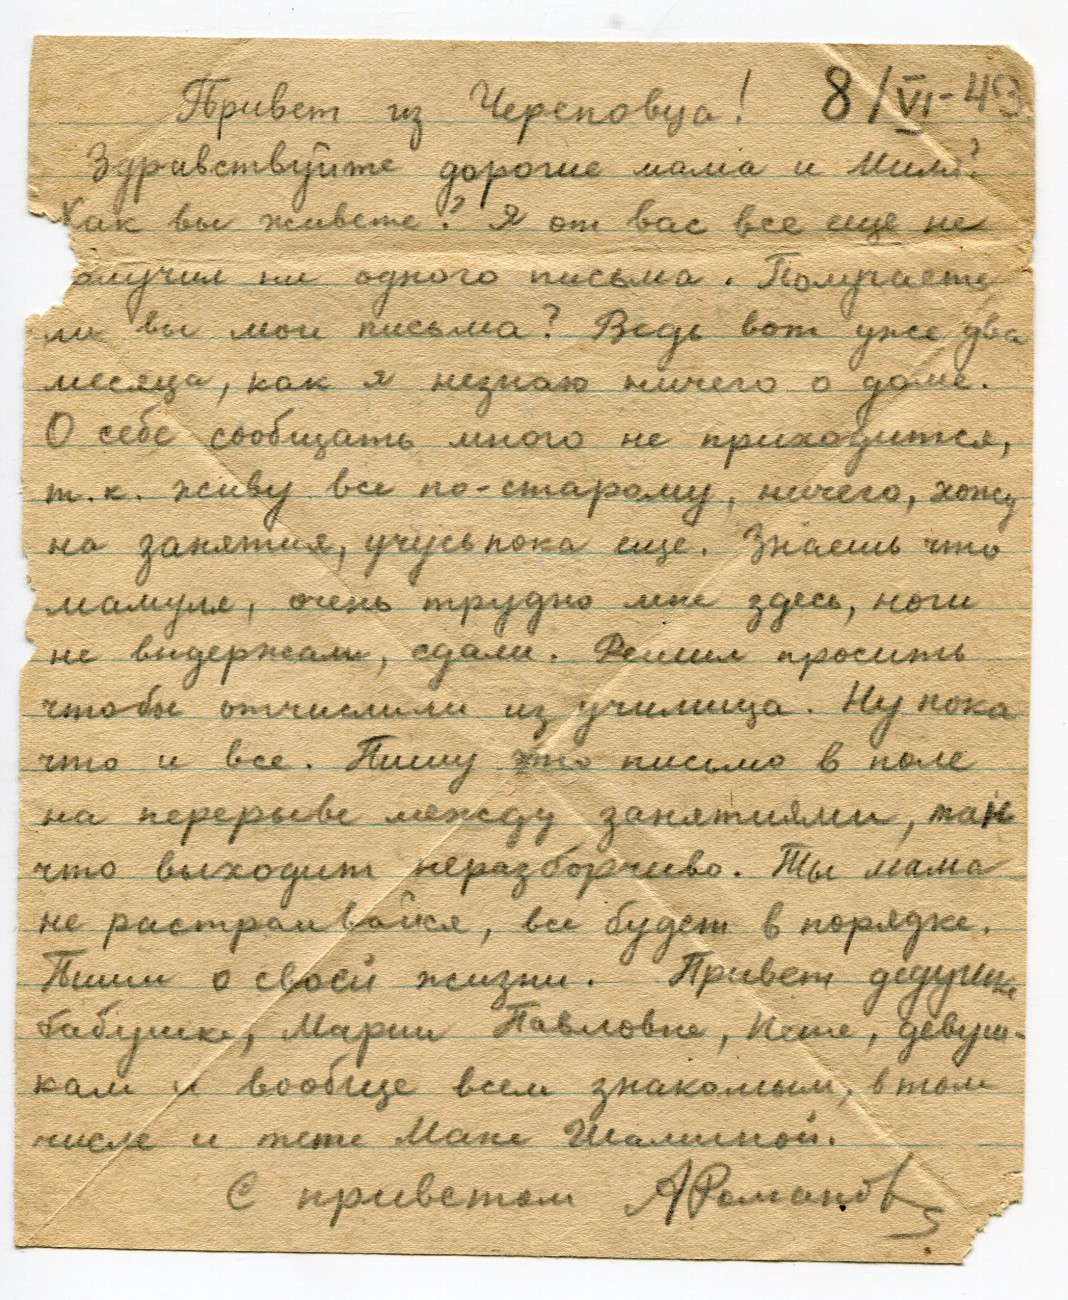 Привет из Череповца! 8/VI-43
Здравствуйте дорогие мама и Миля!
Как вы живете? Я от вас все еще не
получил ни одного письма. Получаете
ли вы мои письма? Ведь вот уже два
месяца, как я незнаю ничего о доме.
О себе сообщать много не приходится,
т.к. живу все по-старому, ничего, хожу
на занятия, учусь пока еще. Знаешь что
мамуля, очень трудно мне здесь, ноги
не выдержали, сдали. Решил просить
чтобы отчислили из училища. Ну пока
что и все. Пишу это письмо в поле
на перерыве между занятиями, так
что выходит неразборчиво. Ты мама
не растраивайся, все будет в порядке.
Пиши о своей жизни. Привет дедушке
бабушке, Марии Павловне, Пете, девуш-
кам и вообще всем знакомым, в том
числе и тете Мане
С приветом АРоманов